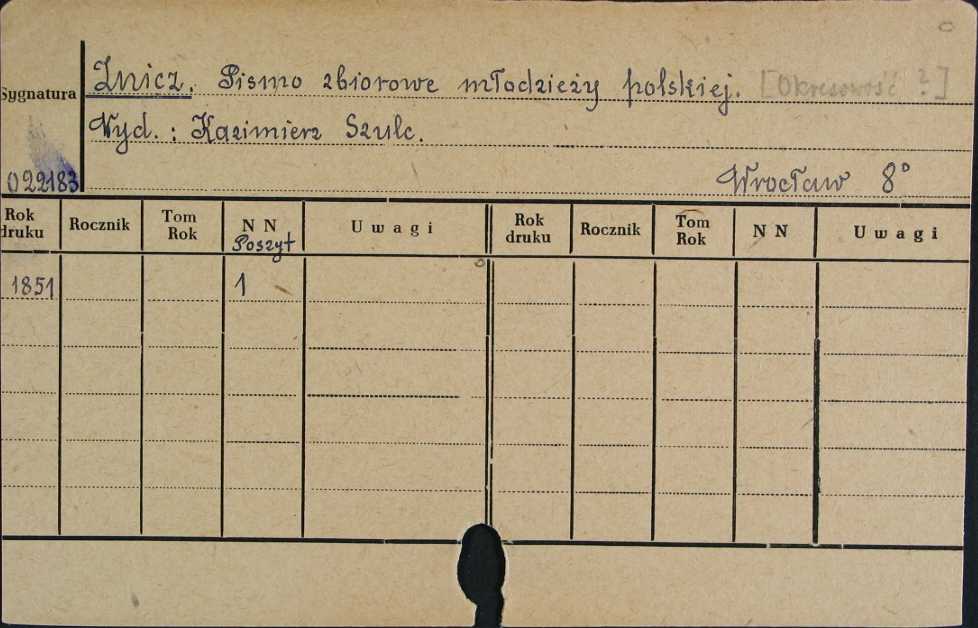 Znicz. Pismo zbiorowe młodzieży polskiej. [Okresowość ?]
Sygnatura
Wyd. : Kazimierz Szulc.
022183
Wrocław 8°
Rok druku Rocznik Tom Rok N N Poszyt Uwagi Rok druku Rocznik Tom Rok N N Uwagi
1851 1